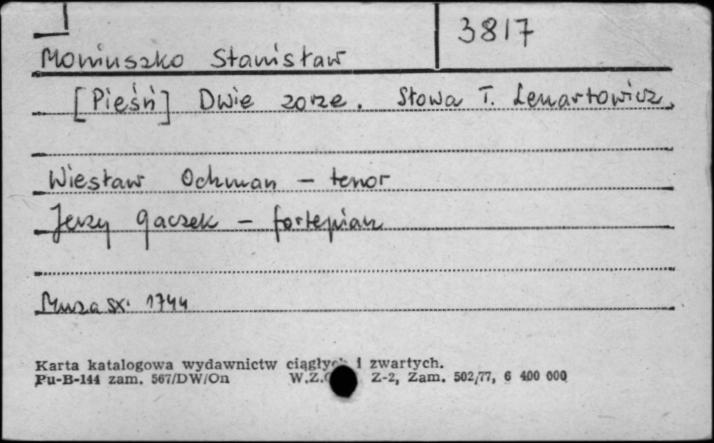 3817
Moniuszko Stanisław
[Pieśń] Dwie zorze. Słowa T. Lenartowicz.
Wiesław Ochman - tenor
Jerzy Gaczek - fortepian
Muza SX. 1744
Karta katalogowa wydawnictw ciągłych i zwartych.
Pu-B-144 zam. 567/DW/On W.Z. Z-2, Zam. 502/77, 6 400 000